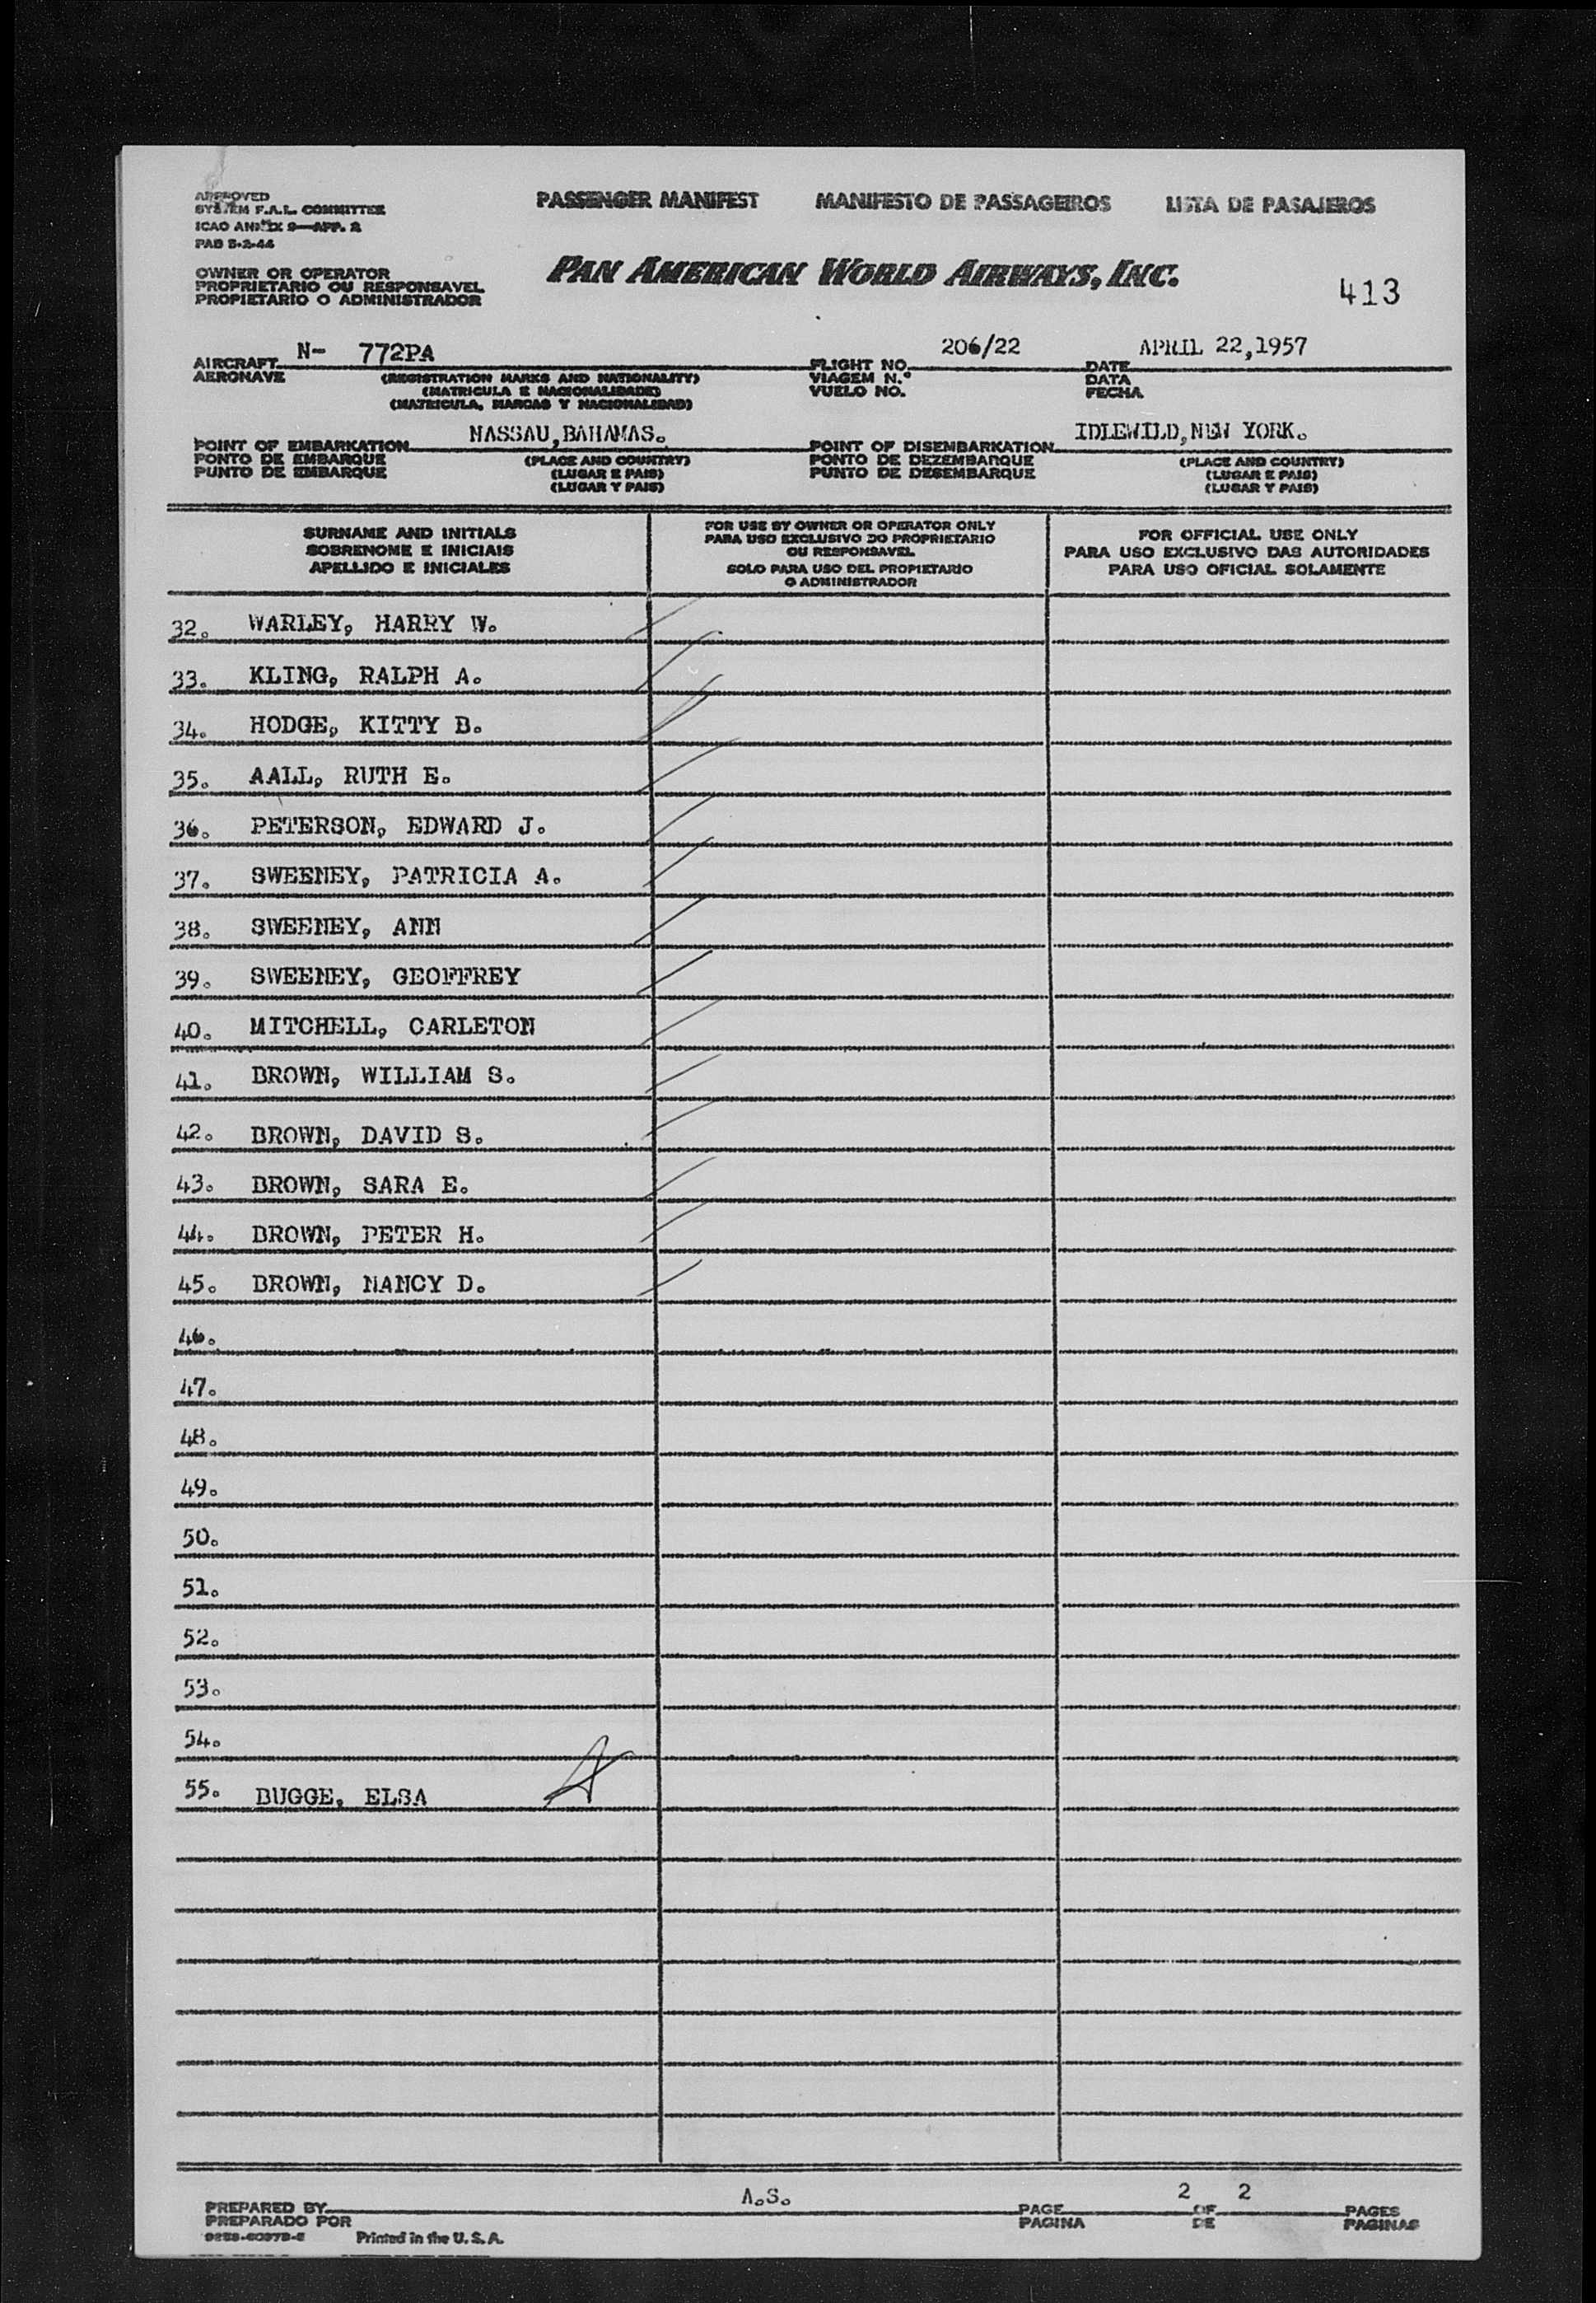 APPROVED
SYSTEM F.A.L. COMMITTEE
ICAO ANNEX 9—APP. 2
PAB 5-2-44
PASSENGER MANIFEST MANIFESTO DE PASSAGEIROS LISTA DE PASAJEROS
OWNER OR OPERATOR
PROPRIETARIO OU RESPONSAVEL
PROPIETARIO O ADMINISTRADOR
PAN AMERICAN WORLD AIRWAYS, INC.
413
AIRCRAFT N- 772PA FLIGHT NO. 206/22 DATE APRIL 22,1957
AERONAVE (REGISTRATION MARKS AND NATIONALITY) VIAGEM N.° DATA
(MATRICULA E NACIONALIDADE) VUELO NO. FECHA
(MATRICULA, MARCAS Y NACIONALIDAD)
POINT OF EMBARKATION NASSAU,BAHAMAS. POINT OF DISEMBARKATION IDLEWILD,NEW YORK.
PONTO DE EMBARQUE (PLACE AND COUNTRY) PONTO DE DEZEMBARQUE (PLACE AND COUNTRY)
PUNTO DE EMBARQUE (LUGAR E PAIS) PUNTO DE DESEMBARQUE (LUGAR E PAIS)
(LUGAR Y PAIS) (LUGAR Y PAIS)
SURNAME AND INITIALS
SOBRENOME E INICIAIS
APELLIDO E INICIALES
FOR USE BY OWNER OR OPERATOR ONLY
PARA USO EXCLUSIVO DO PROPRIETARIO
OU RESPONSAVEL
SOLO PARA USO DEL PROPIETARIO
O ADMINISTRADOR
FOR OFFICIAL USE ONLY
PARA USO EXCLUSIVO DAS AUTORIDADES
PARA USO OFICIAL SOLAMENTE
32. WARLEY, HARRY W.
33. KLING, RALPH A.
34. HODGE, KITTY B.
35. AALL, RUTH E.
36. PETERSON, EDWARD J.
37. SWEENEY, PATRICIA A.
38. SWEENEY, ANN
39. SWEENEY, GEOFFREY
40. MITCHELL, CARLETON
41. BROWN, WILLIAM S.
42. BROWN, DAVID S.
43. BROWN, SARA E.
44. BROWN, PETER H.
45. BROWN, NANCY D.
46.
47.
48.
49.
50.
51.
52.
53.
54.
55. BUGGE, ELSA
PREPARED BY A.S. PAGE 2 OF 2 PAGES
PREPARADO POR PAGINA DE PAGINAS
Printed in the U. S. A.